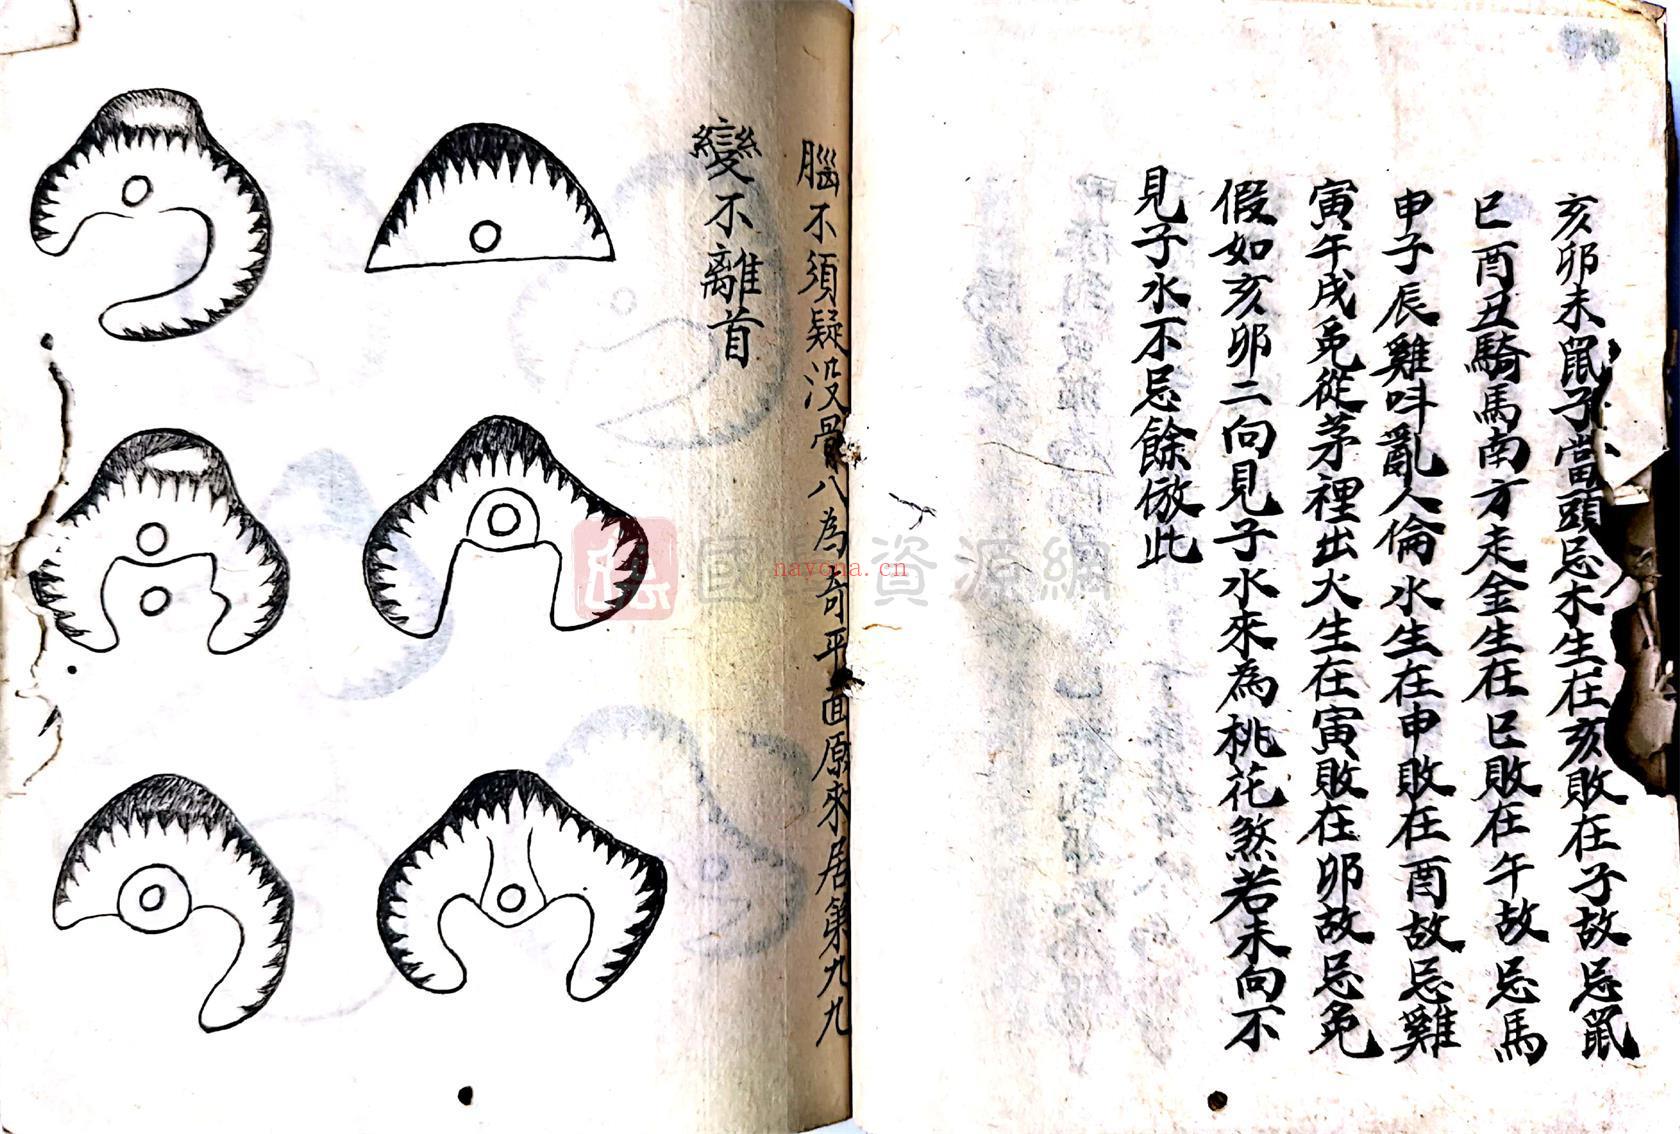 亥卯未鼠子當頭忌木生在亥敗在子故忌鼠
巳酉丑騎馬南方走金生在巳敗在午故忌馬
申子辰雞呌亂人倫水生在申敗在酉故忌雞
寅午戌兎從茅裡出火生在寅敗在卯故忌兎
假如亥卯二向見子水來為桃花煞若未向不
見子水不忌餘倣此
腦不須疑没骨八為奇平面原來居第九九
變不離首
國學資源網
nayona.cn